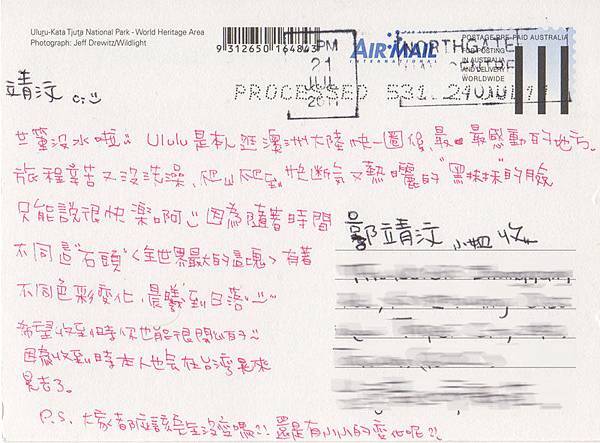 Uluru-Kata Tjuta National Park - World Heritage Area
Photograph: Jeff Drewitz/Wildlight
9 312650 164843
PM
21
JUL
AIR MAIL
INTERNATIONAL
POSTAGE PRE-PAID AUSTRALIA
FOR POSTING
IN AUSTRALIA
AND DELIVERY
WORLDWIDE
NORTHGATE
CENTRE
PROCESSED 531 24JUL11
靖汶
世界沒水啦 Ululu是本人逛澳洲大陸快一圈後,最最感動的地方。
旅程辛苦又沒洗澡,爬山爬到快斷氣又熱曬的"黑抹抹"的臉
只能說很快樂啊 因為隨著時間
不同這"石頭"<全世界最大的這塊>有著
不同色彩變化,晨曦到日落
希望收到時你也能很開心的
因為收到時本人也会在台灣晃來
晃去了。
P.S. 大家都應該完全沒變嗎?! 還是有小小的變化呢?!
鄭靖汶 小姐 收